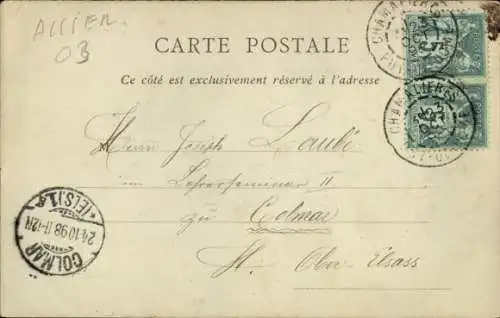 ALLIER
03
CARTE POSTALE
Ce côté est exclusivement réservé à l'adresse
CHAMALIERES
CHAMALIERES
Herrn Joseph Laubé
im Lehrerseminar II
zu Colmar
Ober Elsass
COLMAR
24.10.98.11-12N
*(ELS.)1.*